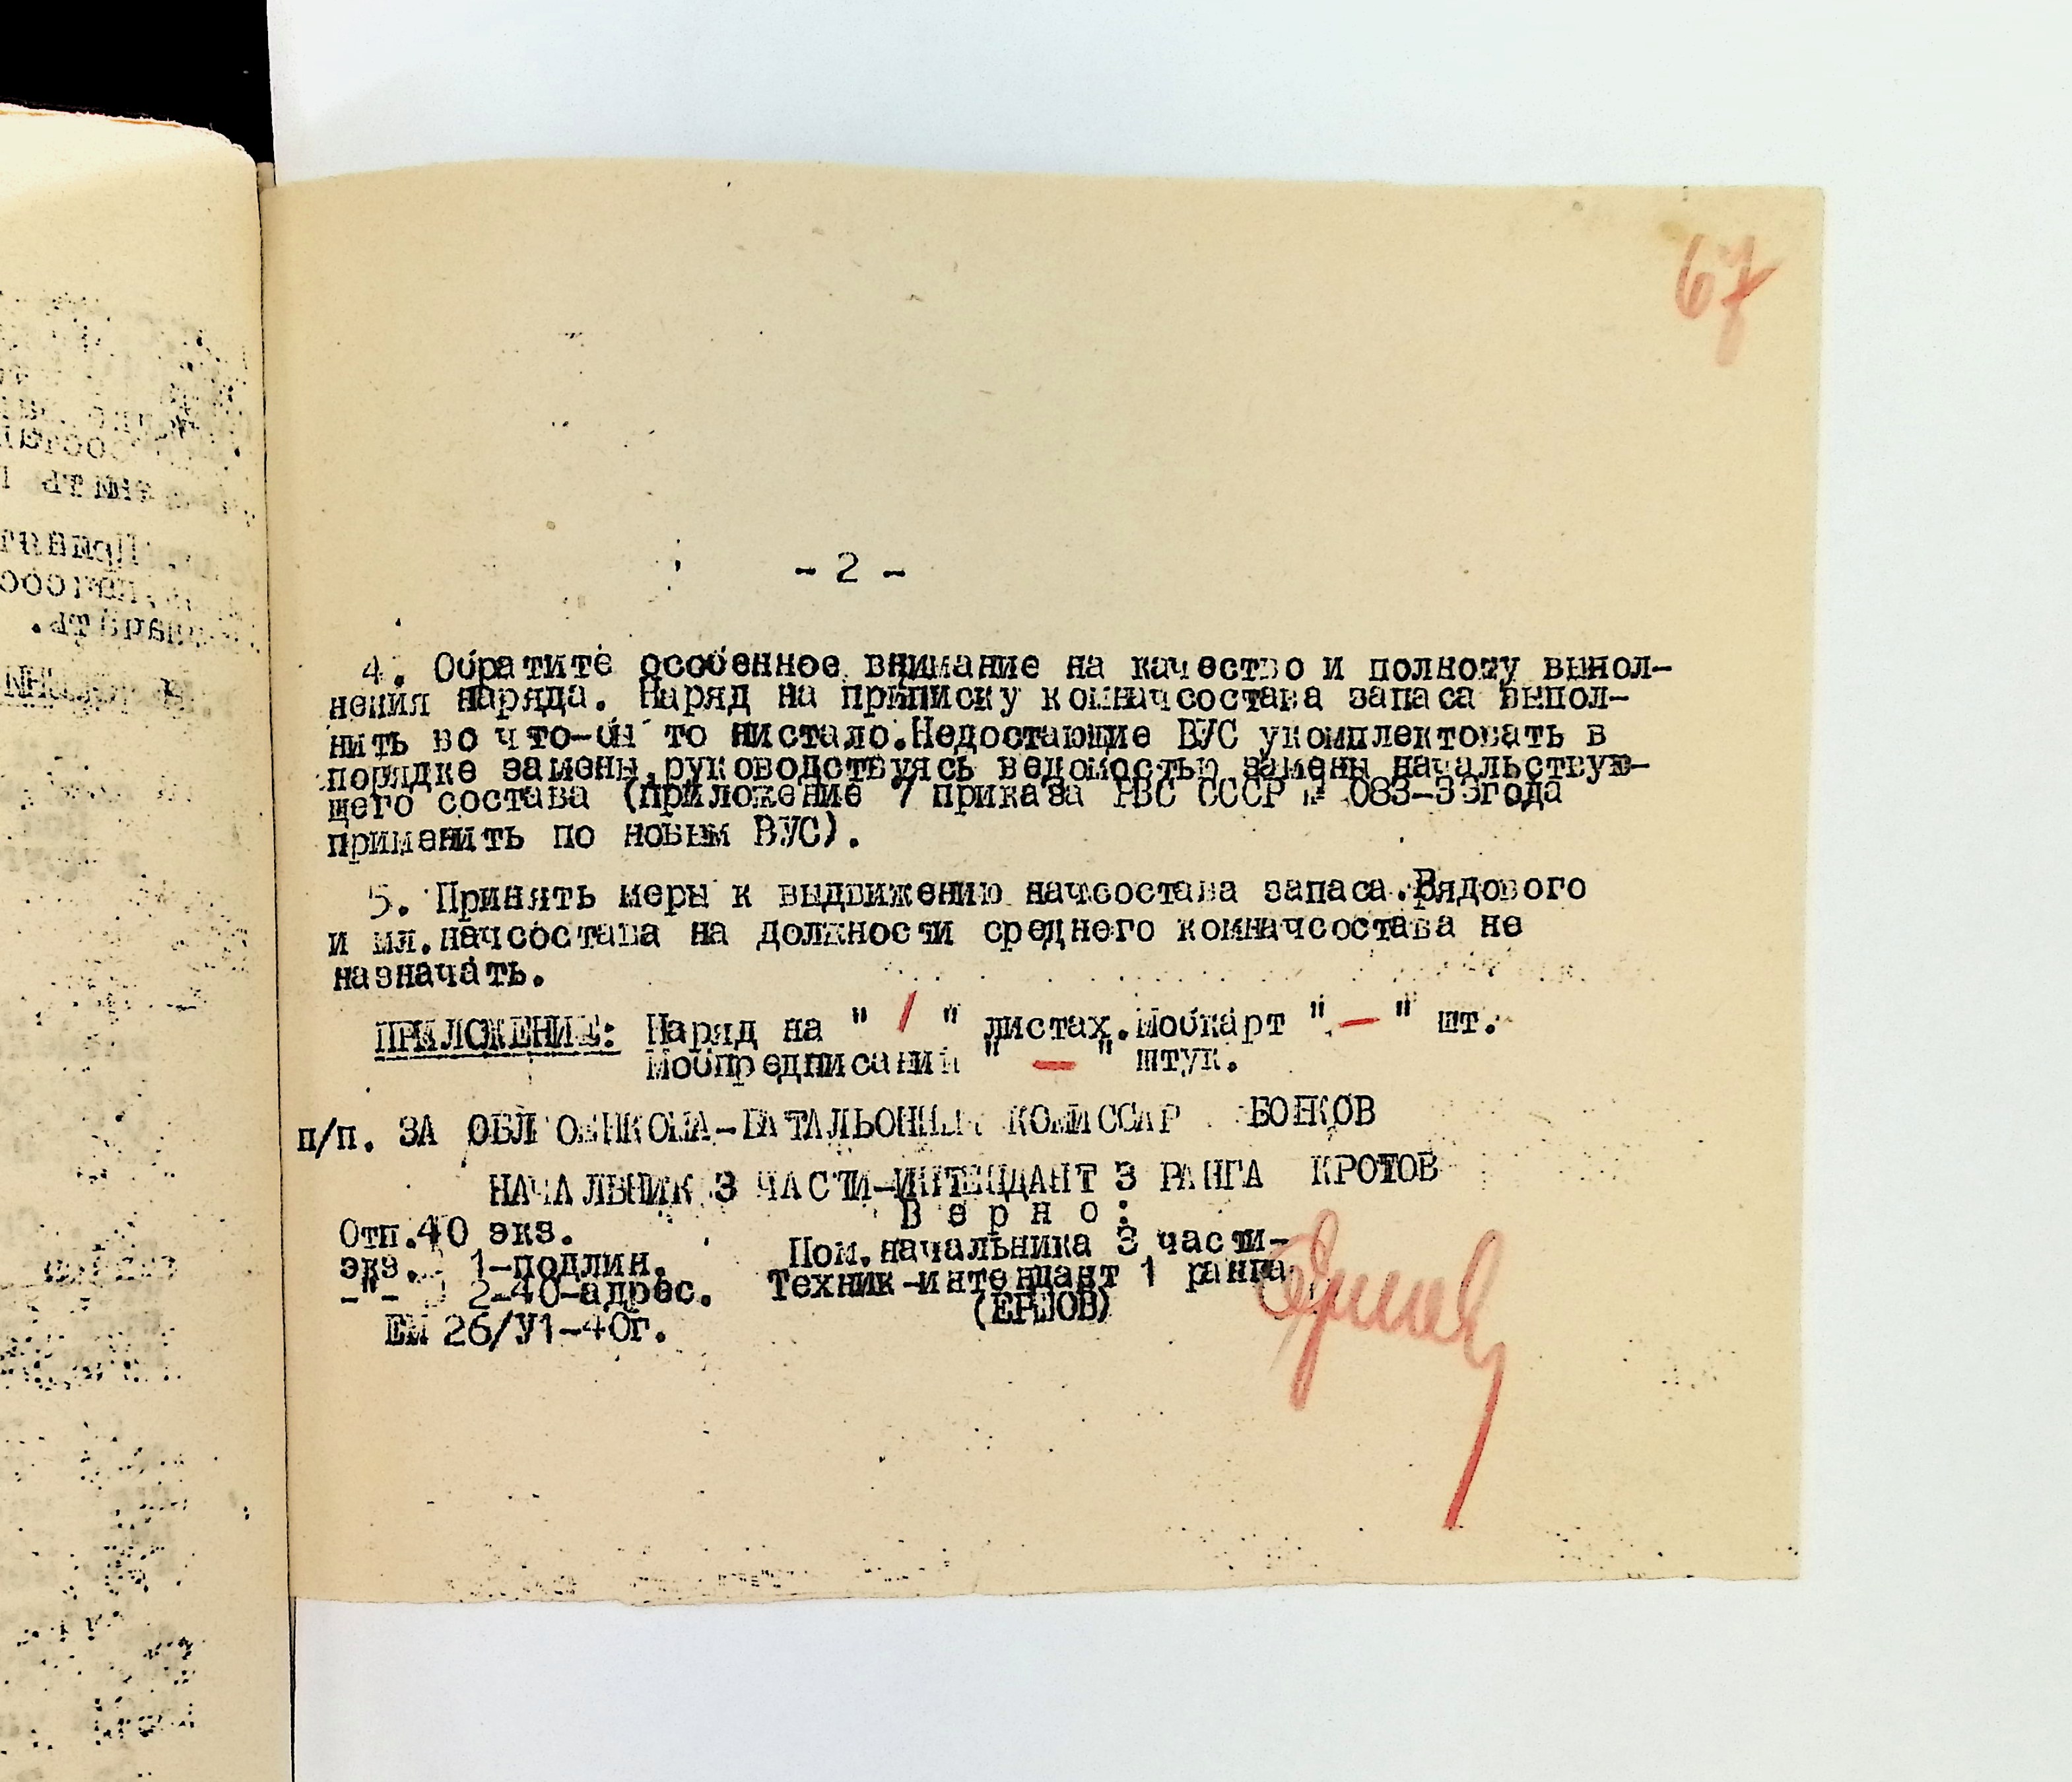 67
- 2 -
4. Обратите особенное внимание на качество и полноту выпол-
нения наряда. Наряд на приписку комначсостава запаса выпол-
нить во что-бы то нистало.Недостающие ВУС укомплектовать в
порядке замены,руководствуясь ведомостью замены начальствую-
щего состава (приложение 7 приказа РВС СССР № 083-33года
применить по новым ВУС).
5. Принять меры к выдвижению начсостава запаса.Рядового
и мл.начсостава на должности среднего комначсостава не
назначать.
ПРИЛОЖЕНИЕ: Наряд на " 1 " листах.Мобкарт " — " шт.
Мобпредписаний " — " штук.
п/п. ЗА ОБЛВОЕНКОМА-БАТАЛЬОННЫЙ КОМИССАР БОЙКОВ
НАЧАЛЬНИК 3 ЧАСТИ-ИНТЕНДАНТ 3 РАНГА КРОТОВ
В е р н о :
Отп.40 экз.
Пом.начальника 3 части-
экз. 1-подлин.
Техник-интендант 1 ранга
-"- 2-40-адрес.
(ЕРШОВ)
ЕМ 26/У1-40г.